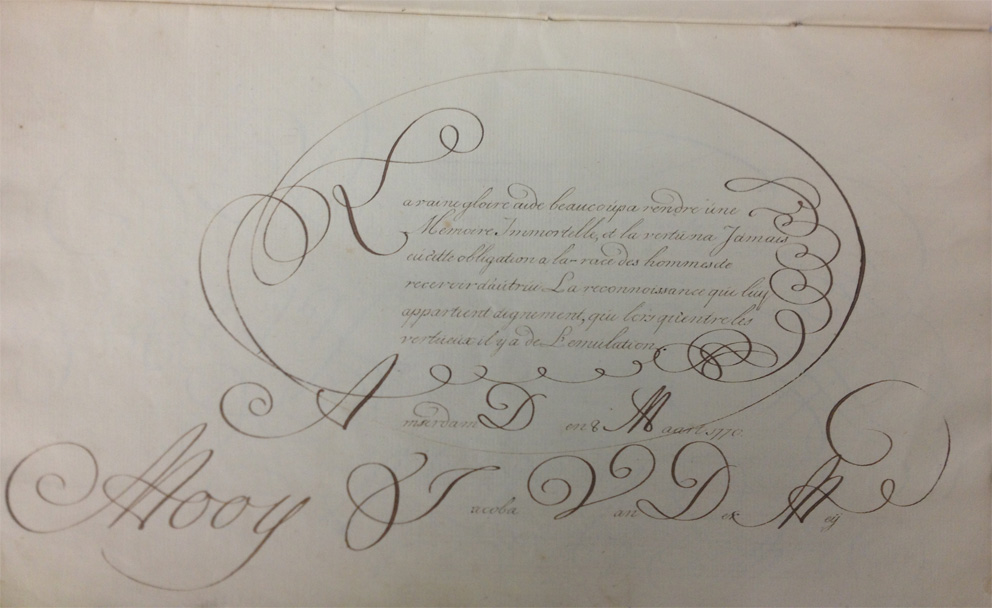 La raine gloire aide beaucoup a rendre üne
Memoire Immortelle, et la vertú na Jamais
eú cette obligation a la race des hommes de
recevoir d'aútrui La reconnoissance qui lúy
appartient dignement, qúi lors qu'entre les
vertúeux il y a de L'emúlation
Amsterdam Den 8 Maart 1770.
Mooy Jacoba Van Der Meij